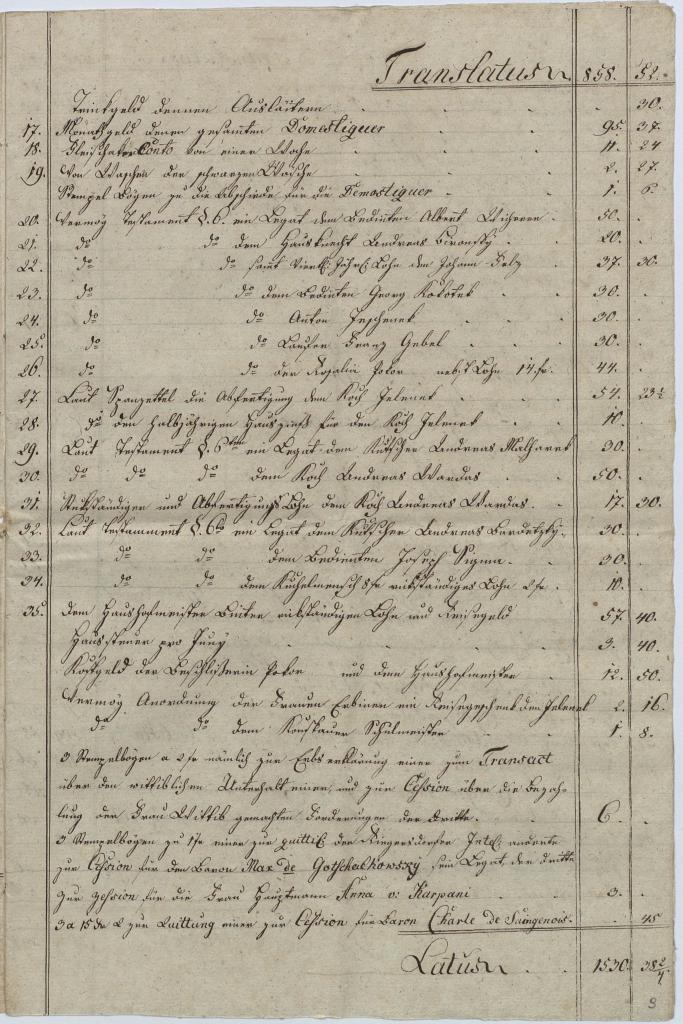 Translatus 858. 52.
Trinkgeld denen Ausläutern . . . . 30.
17. Monathgeld denen gesamten Domestiquer . . . 95. 37.
18. Fleischhaker Conto von einer Woche . . . 11. 24
19. Von Waschen der schwarzen Wäsche . . . 2. 27.
Stempel Bögen zu die Abschiede für die Domestiquer . . 1. 6.
20. Vermög Testament §. 6. ein Legat dem Bedinten Albert . 50. .
21. do do dem Hausknecht Andreas . . 20. .
22. do do samt Lohn dem Johann . 37. 30.
23. do do dem Bedinten Georg Kokotek . . 30. .
24. do do Anton . . 30. .
25. do do Laufer Franz Gebel . . . 30. .
26. do do der Rosalia Pokor nebst Lohn 14 fr. . 44. .
27. Laut Spanzettel die Abfertigung dem Koch Jelenek . . . 54. 23½
28. do den halbjährigen Hauszinß für den Koch Jelenek . . 10. .
29. Laut Testament §. 6ten ein Legat dem Kutscher Andreas Malharek 30. .
30. do do do dem Koch Andreas Wardas . . 50. .
31. Rükständigen und Abfertigungs Lohn dem Koch Andreas Wardas . . 17. 30.
32. Laut Testamment §. 6to ein Legat dem Kutscher Andreas . 30. .
33. do do dem Bedienten Joseph Sigma . . 30. .
34. do do dem Kuhelmensch 8 fr rükständiges Lohn 2 fr . 10. .
35. Dem Haushofmeister rükständigen Lohn und Reisegeld 57. 40.
Haussteuer pro Juny . . . . 3. 40.
Kostgeld der Beschlüsserin Pokor und dem Haushofmeister . 12. 50.
Vermög Anordnung der Frauen Erbinen ein Reisegeschenk dem Jelenek 2. 16.
do do dem Schulmeister . . 1. 8.
3 Stempelbögen a 2 fr nämlich zur Erbserklärung einer zum Transact
über den wittiblichen Unterhalt einer, und zur Cession über die Bezah-
lung der Frau Wittib gemachten Forderungen der dritte . . . 6. .
3 Stempelbögen zu 1 fr einer zur quittß der anderte
zur Cession für den Baron Max de Gotschalkowsky sein Legat, der dritte
zur zession für die Frau Hauptmann Anna v: Karpani . . 3. .
3 a 15 xr 2 zur Quittung einer zur Cession für Baron Charle de Saingenois . . 45
Latus . . 1530. 38 2/4
3